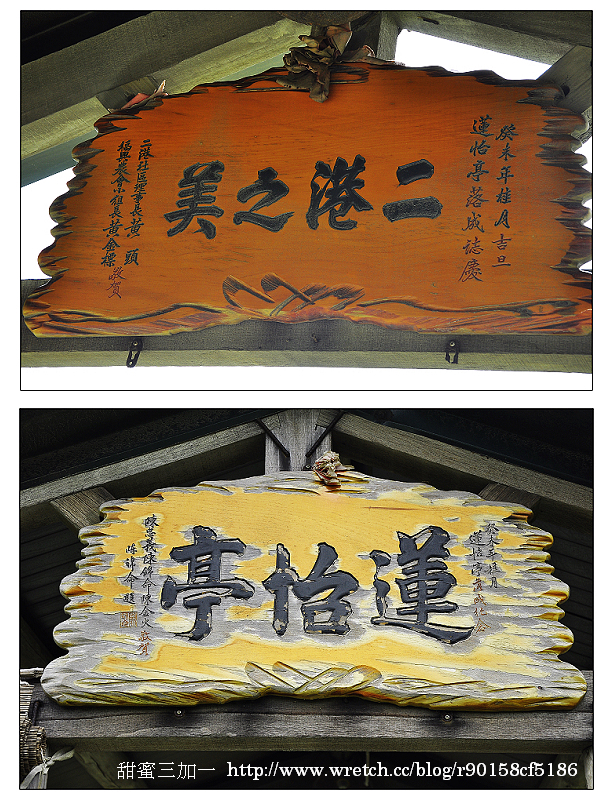 癸未年桂月吉旦
蓮怡亭落成誌慶
二港之美
二港社區理事長黃 頭
福興農會小組長黃金標敬賀
癸未年桂月
蓮怡亭落成
蓮怡亭
敬賀
甜蜜三加一 http://www.wretch.cc/blog/r90158cf5186